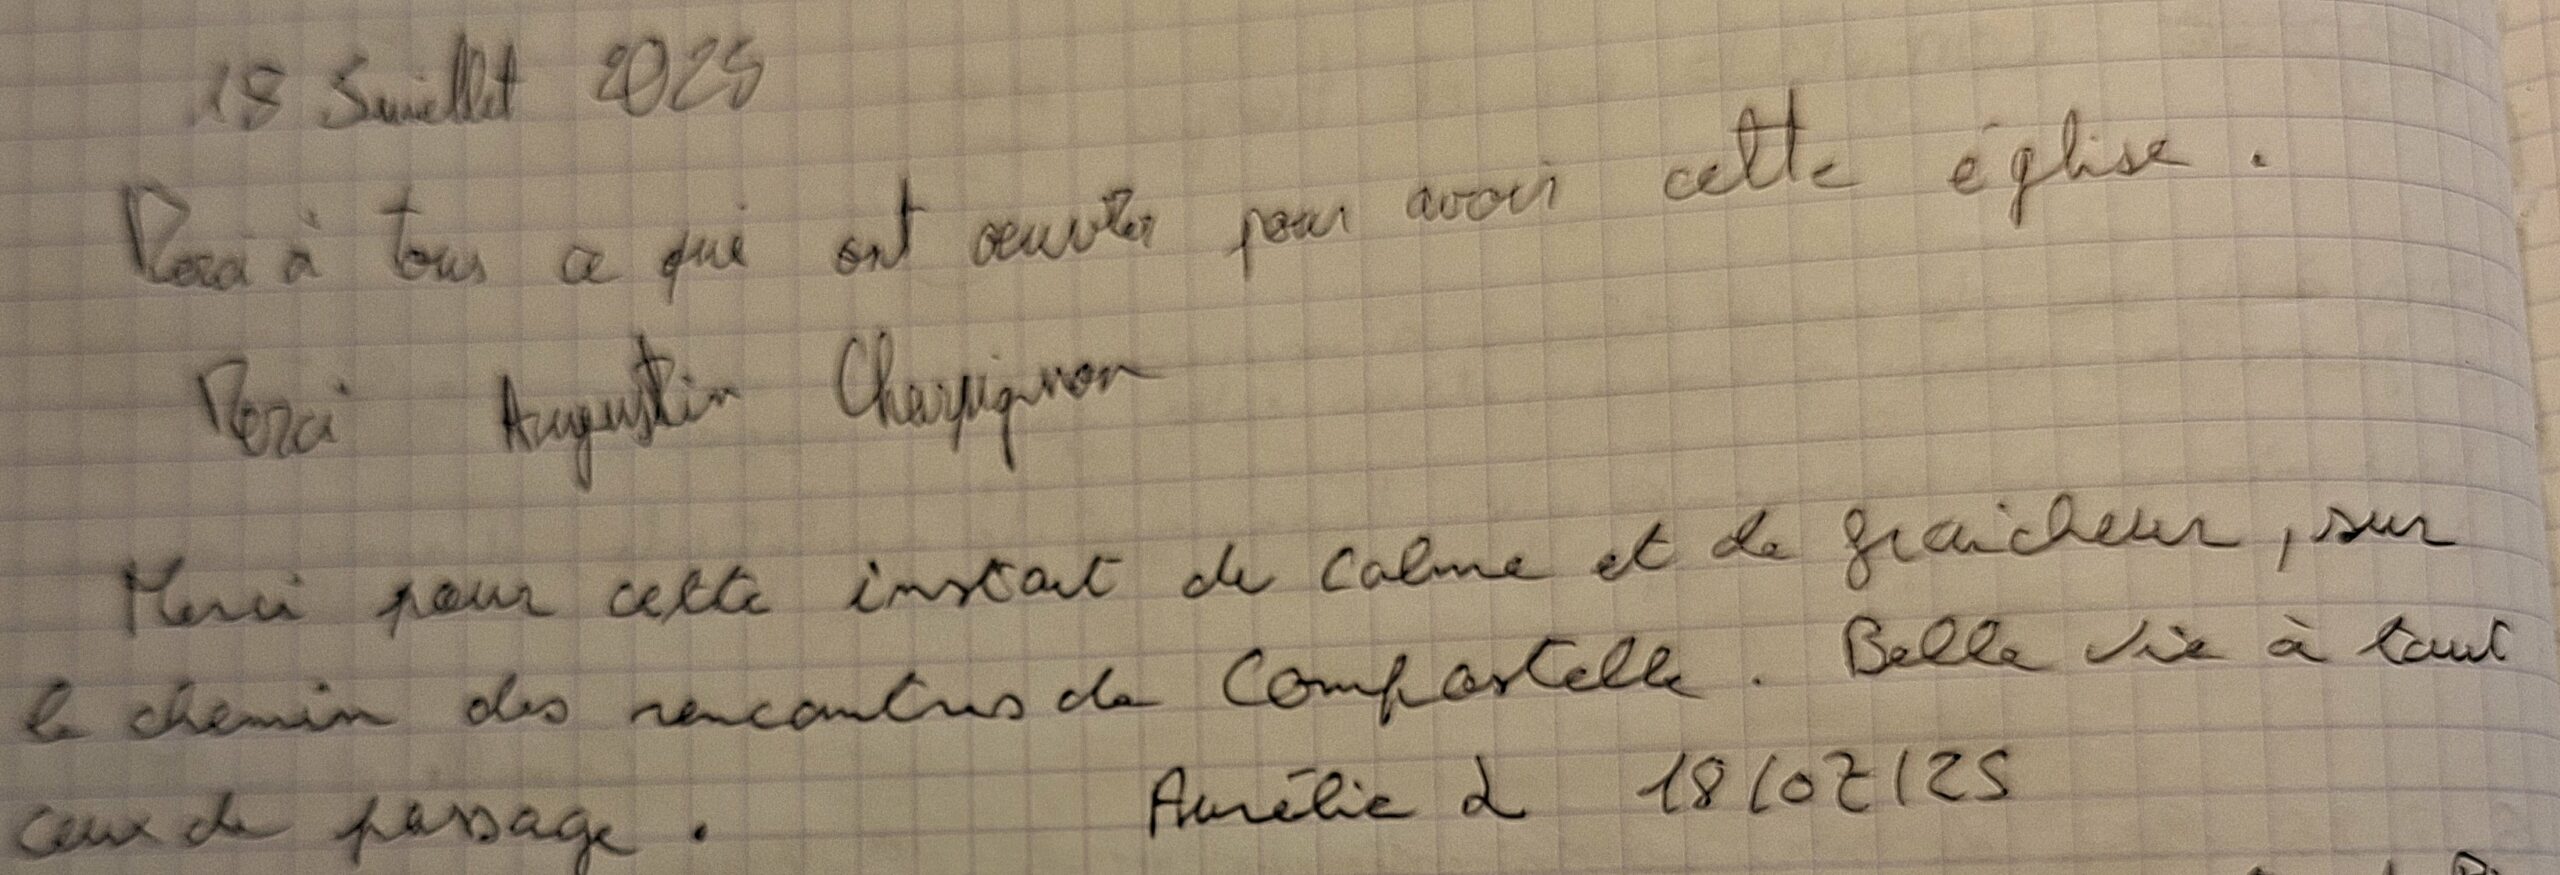 18 Juillet 2025
Merci à tous ce qui ont oeuvrer pour avoir cette église.
Merci Augustin Charpignon
Merci pour cette instant de calme et de fraicheur, sur
le chemin des rencontres de Compostelle. Belle vie à tout
ceux de passage.
Aurélie L 18/07/25